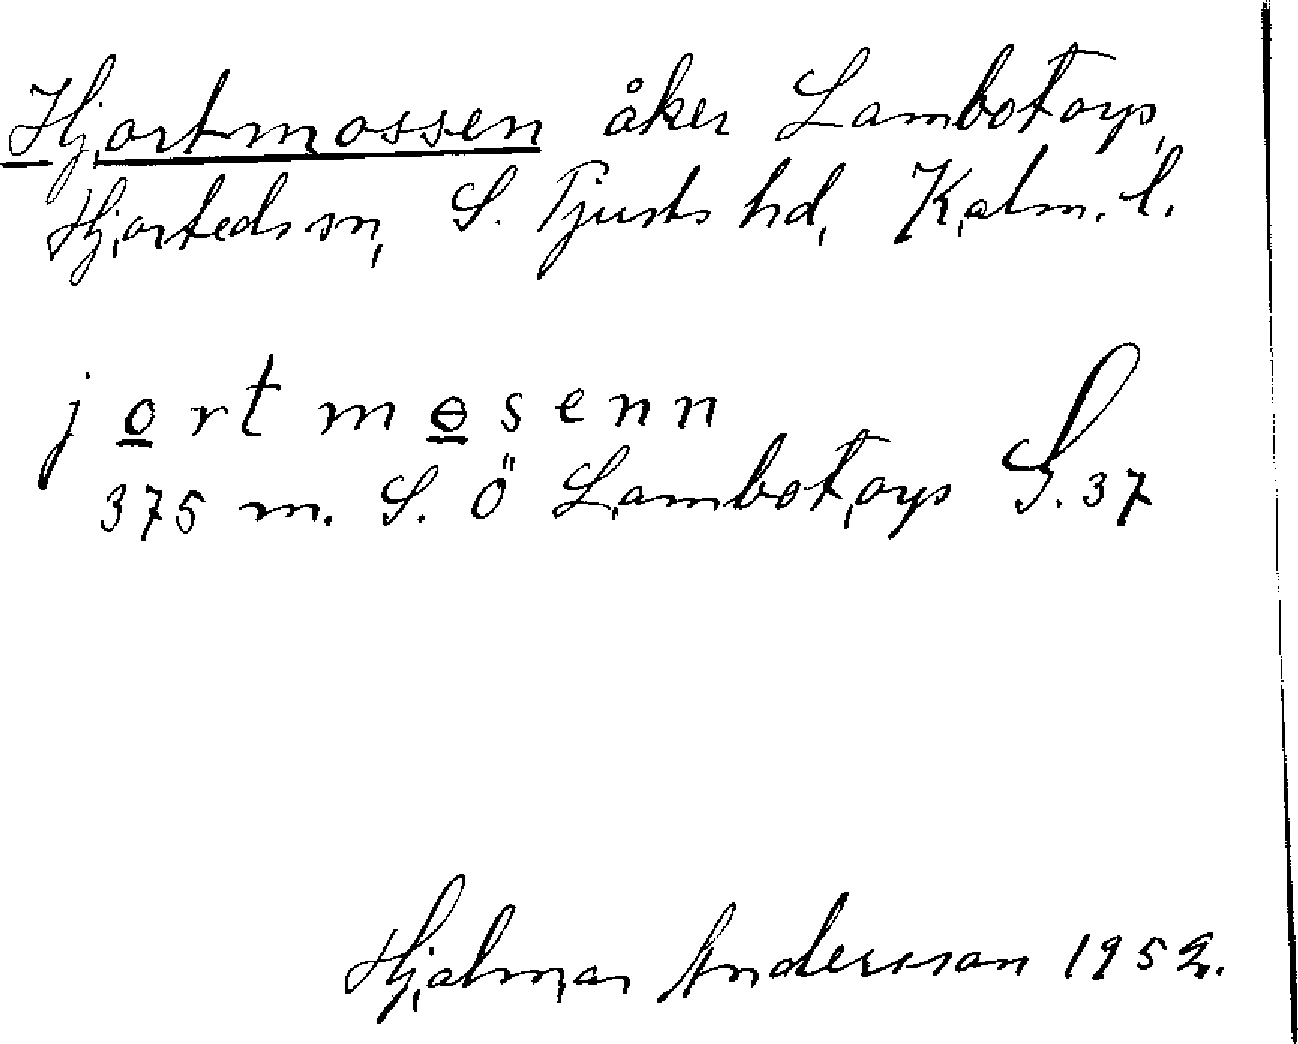 Hjortmossen åker Lambotorp,
Hjorteds sn, S. Tjusts hd, Kalm. l.
jortmosenn
375 m. S. Ö Lambotorp S. 37
Hjalmar Andersson 1952.